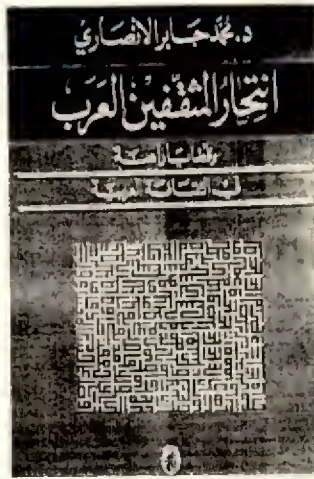 د. محمد جابر الانصاري
انتحار المثقفين العرب
وقضايا راهنة
في الثقافة العربية